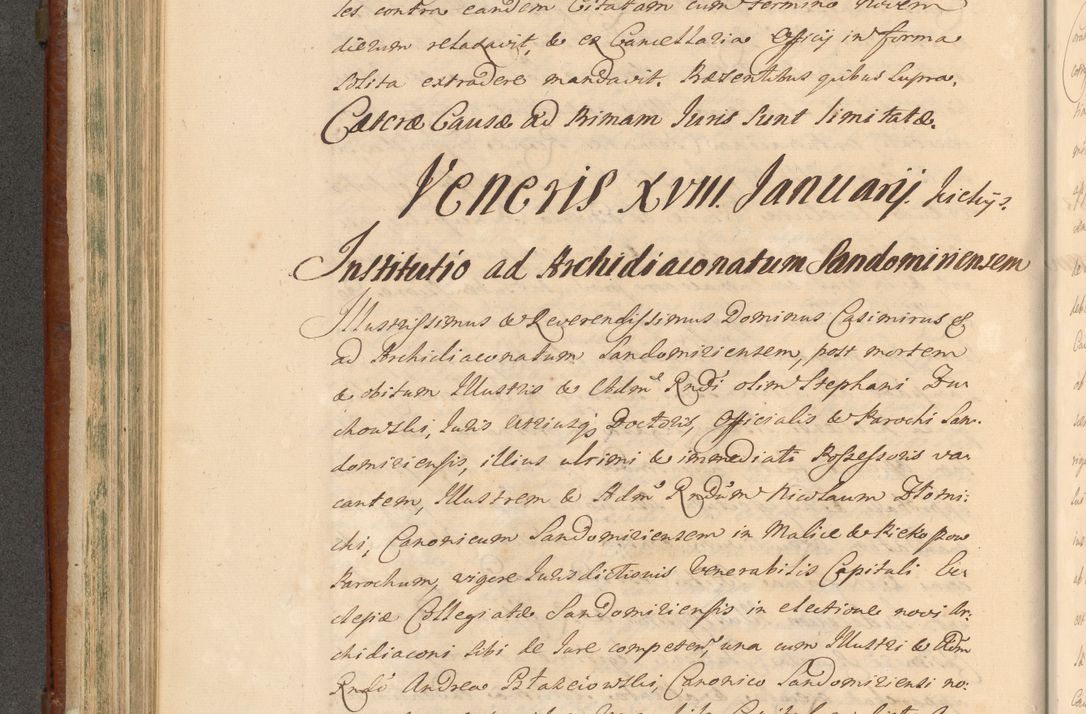 les contra eandem Citatam cum termino novem
dierum relaxavit, & ex Cancellaria Officij in forma
solita extradere mandavit. Præsentibus quibus supra.
Cæteræ Causæ ad Primam Iuris sunt limitatæ.
Veneris XVIII. Ianuarij. Kielcijs.
Institutio ad Archidiaconatum Sandomiriensem
Illustrissimus & Reverendissimus Dominus Casimirus &
ad Archidiaconatum Sandomiriensem, post mortem
& obitum Illustris & Admˢ Rndi olim Stephani Zu
chowski, Iuris Utriusq, Doctoris, Officialis & Parochi San-
domiriensis, illius ultimi & immediati Possessoris va
cantem, Illustrem & Admˢ Rndum Nicolaum Złotni-
cki, Canonicum Sandomiriensem in Malice &
Parochum, vigore Iurisdictionis Venerabilis Capituli Ec
clesiæ Collegiatæ Sandomiriensis in electione novi Ar-
chidiaconi sibi de Iure competen, una cum Illustri & Adm
Rndo Andrea Canonico Sandomiriensi no-